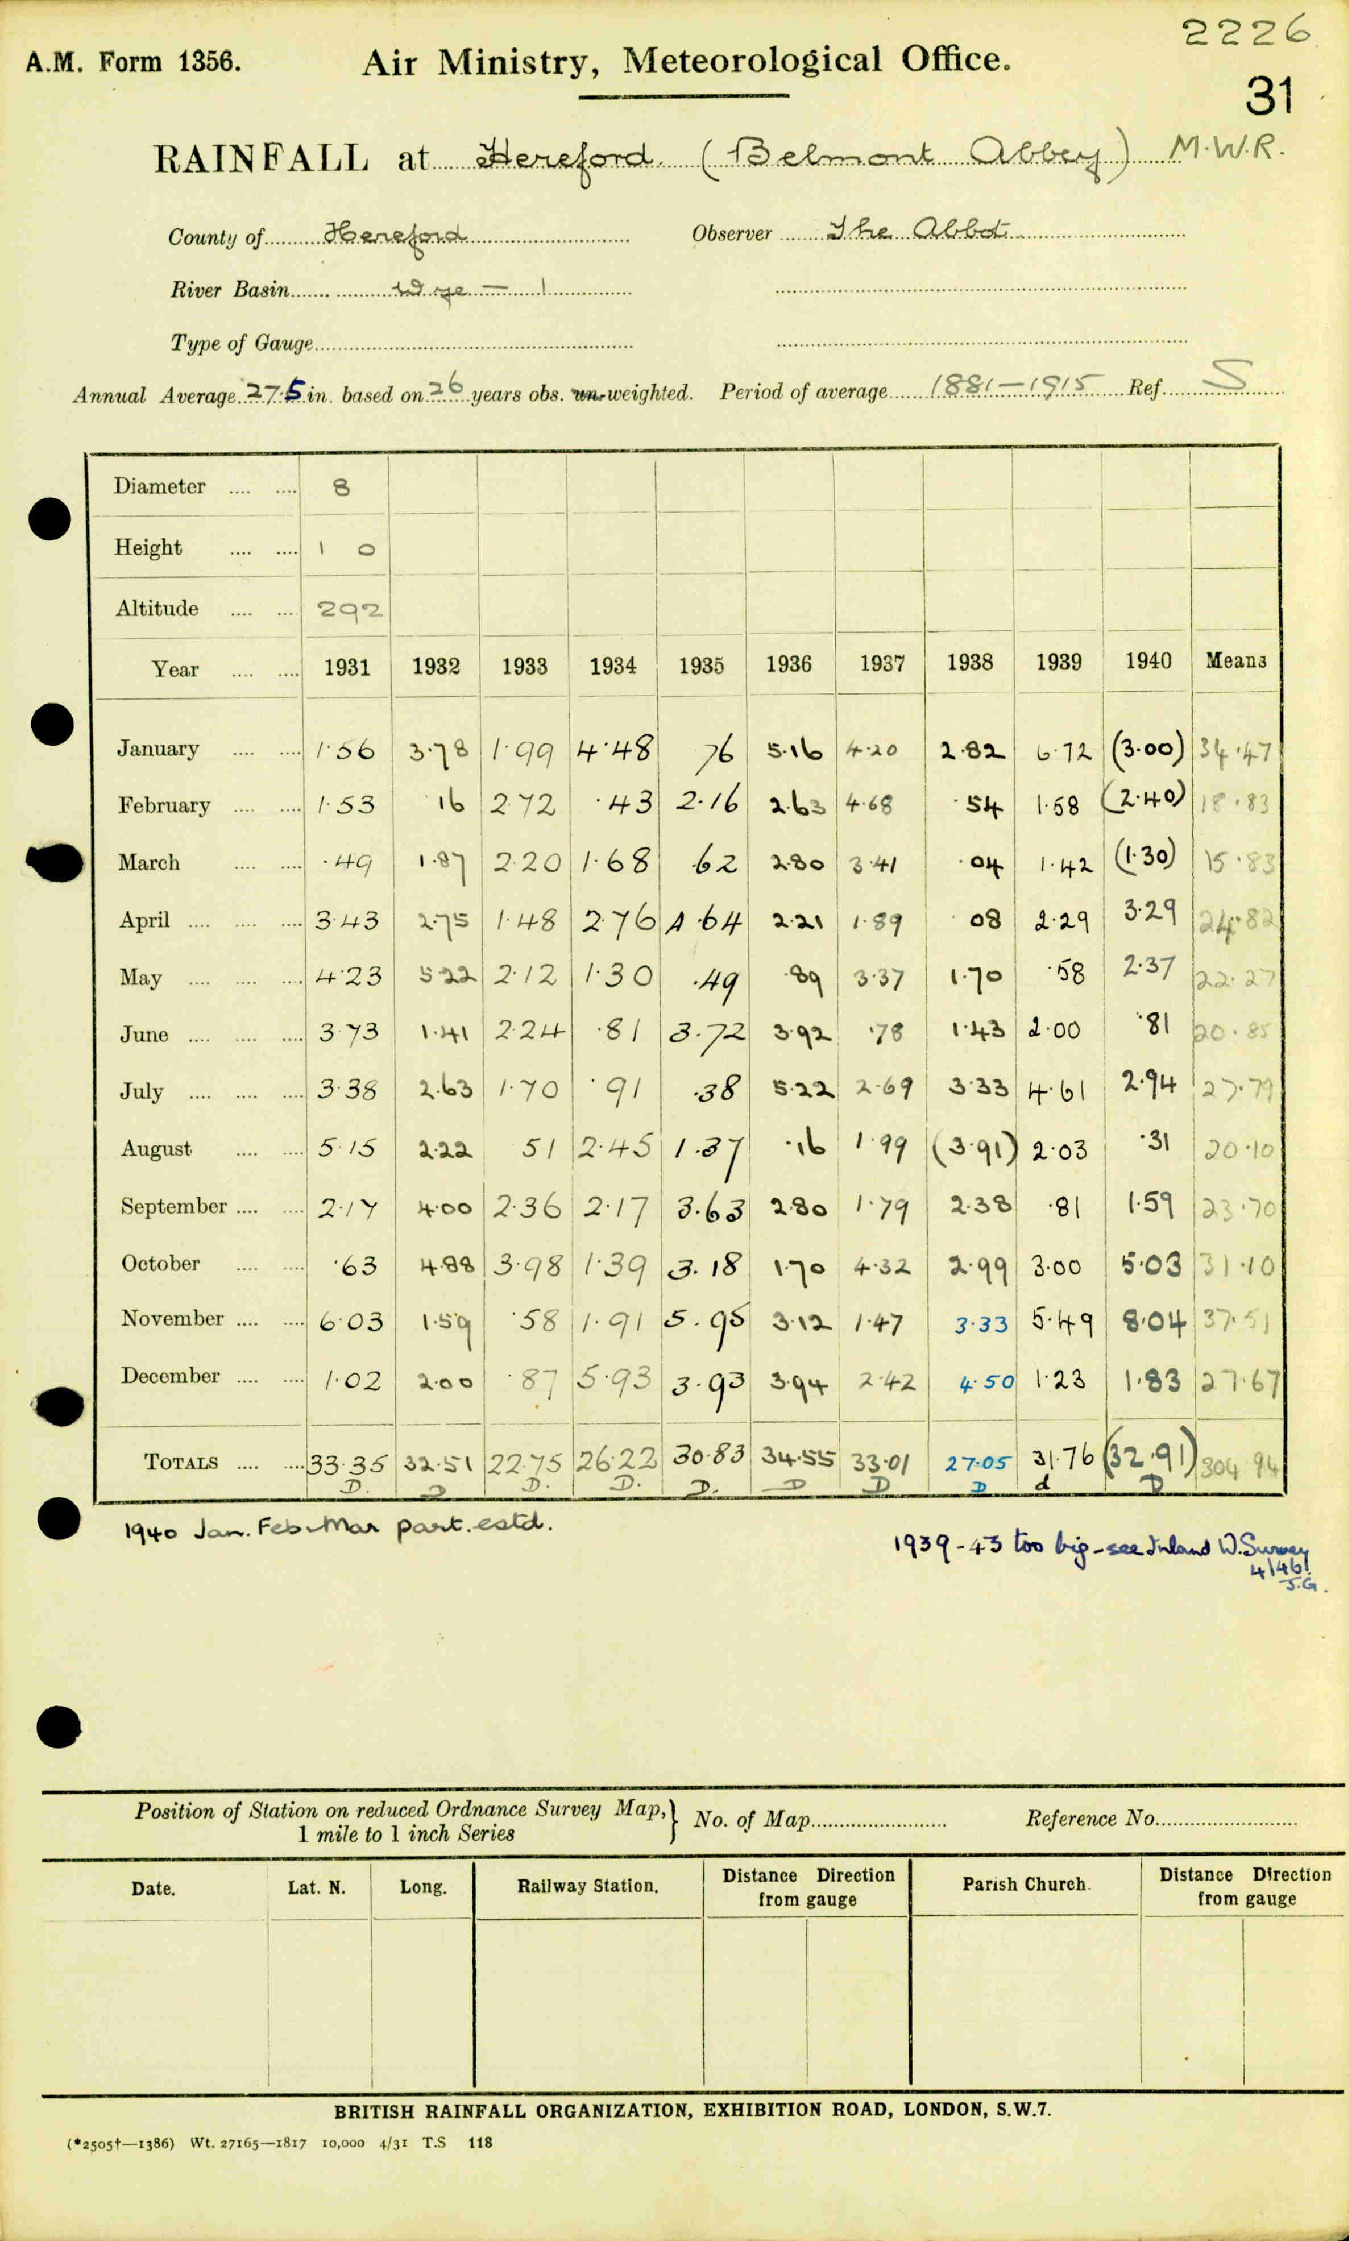 2226
A.M. Form 1356. Air Ministry, Meteorological Office.
31
RAINFALL at Hereford. (Belmont Abbey) M.W.R.
County of Hereford Observer The Abbot
River Basin Wye — 1
Type of Gauge
Annual Average 27.5 in. based on 26 years obs. un-weighted. Period of average 1881—1915 Ref. S
Diameter 8
Height 1 0
Altitude 292
Year 1931 1932 1933 1934 1935 1936 1937 1938 1939 1940 Means
January 1.56 3.78 1.99 4.48 76 5.16 4.20 2.82 6.72 (3.00) 34.47
February 1.53 16 2.72 .43 2.16 2.63 4.68 .54 1.58 (2.40) 18.83
March .49 1.87 2.20 1.68 .62 2.80 3.41 .04 1.42 (1.30) 15.83
April 3.43 2.75 1.48 2.76 A .64 2.21 1.89 08 2.29 3.29 24.82
May 4.23 5.22 2.12 1.30 .49 .89 3.37 1.70 .58 2.37 22.27
June 3.73 1.41 2.24 .81 3.72 3.92 .78 1.43 2.00 .81 20.85
July 3.38 2.63 1.70 .91 .38 5.22 2.69 3.33 4.61 2.94 27.79
August 5.15 2.22 51 2.45 1.37 .16 1.99 (3.91) 2.03 .31 20.10
September 2.17 4.00 2.36 2.17 3.63 2.80 1.79 2.38 .81 1.59 23.70
October .63 4.88 3.98 1.39 3.18 1.70 4.32 2.99 3.00 5.03 31.10
November 6.03 1.59 .58 1.91 5.95 3.12 1.47 3.33 5.49 8.04 37.51
December 1.02 2.00 .87 5.93 3.93 3.94 2.42 4.50 1.23 1.83 27.67
TOTALS 33.35 32.51 22.75 26.22 30.83 34.55 33.01 27.05 31.76 (32.91) 304.94
D. D D. D. D. D D D d D
1940 Jan. Feb. Mar part. estd.
1939-43 too big - see Inland W. Survey
4/46!
J.G.
Position of Station on reduced Ordnance Survey Map,} No. of Map Reference No.
1 mile to 1 inch Series
Date. Lat. N. Long. Railway Station. Distance Direction from gauge Parish Church. Distance Direction from gauge
BRITISH RAINFALL ORGANIZATION, EXHIBITION ROAD, LONDON, S.W.7.
(*2505†—1386) Wt. 27165—1817 10,000 4/31 T.S 118